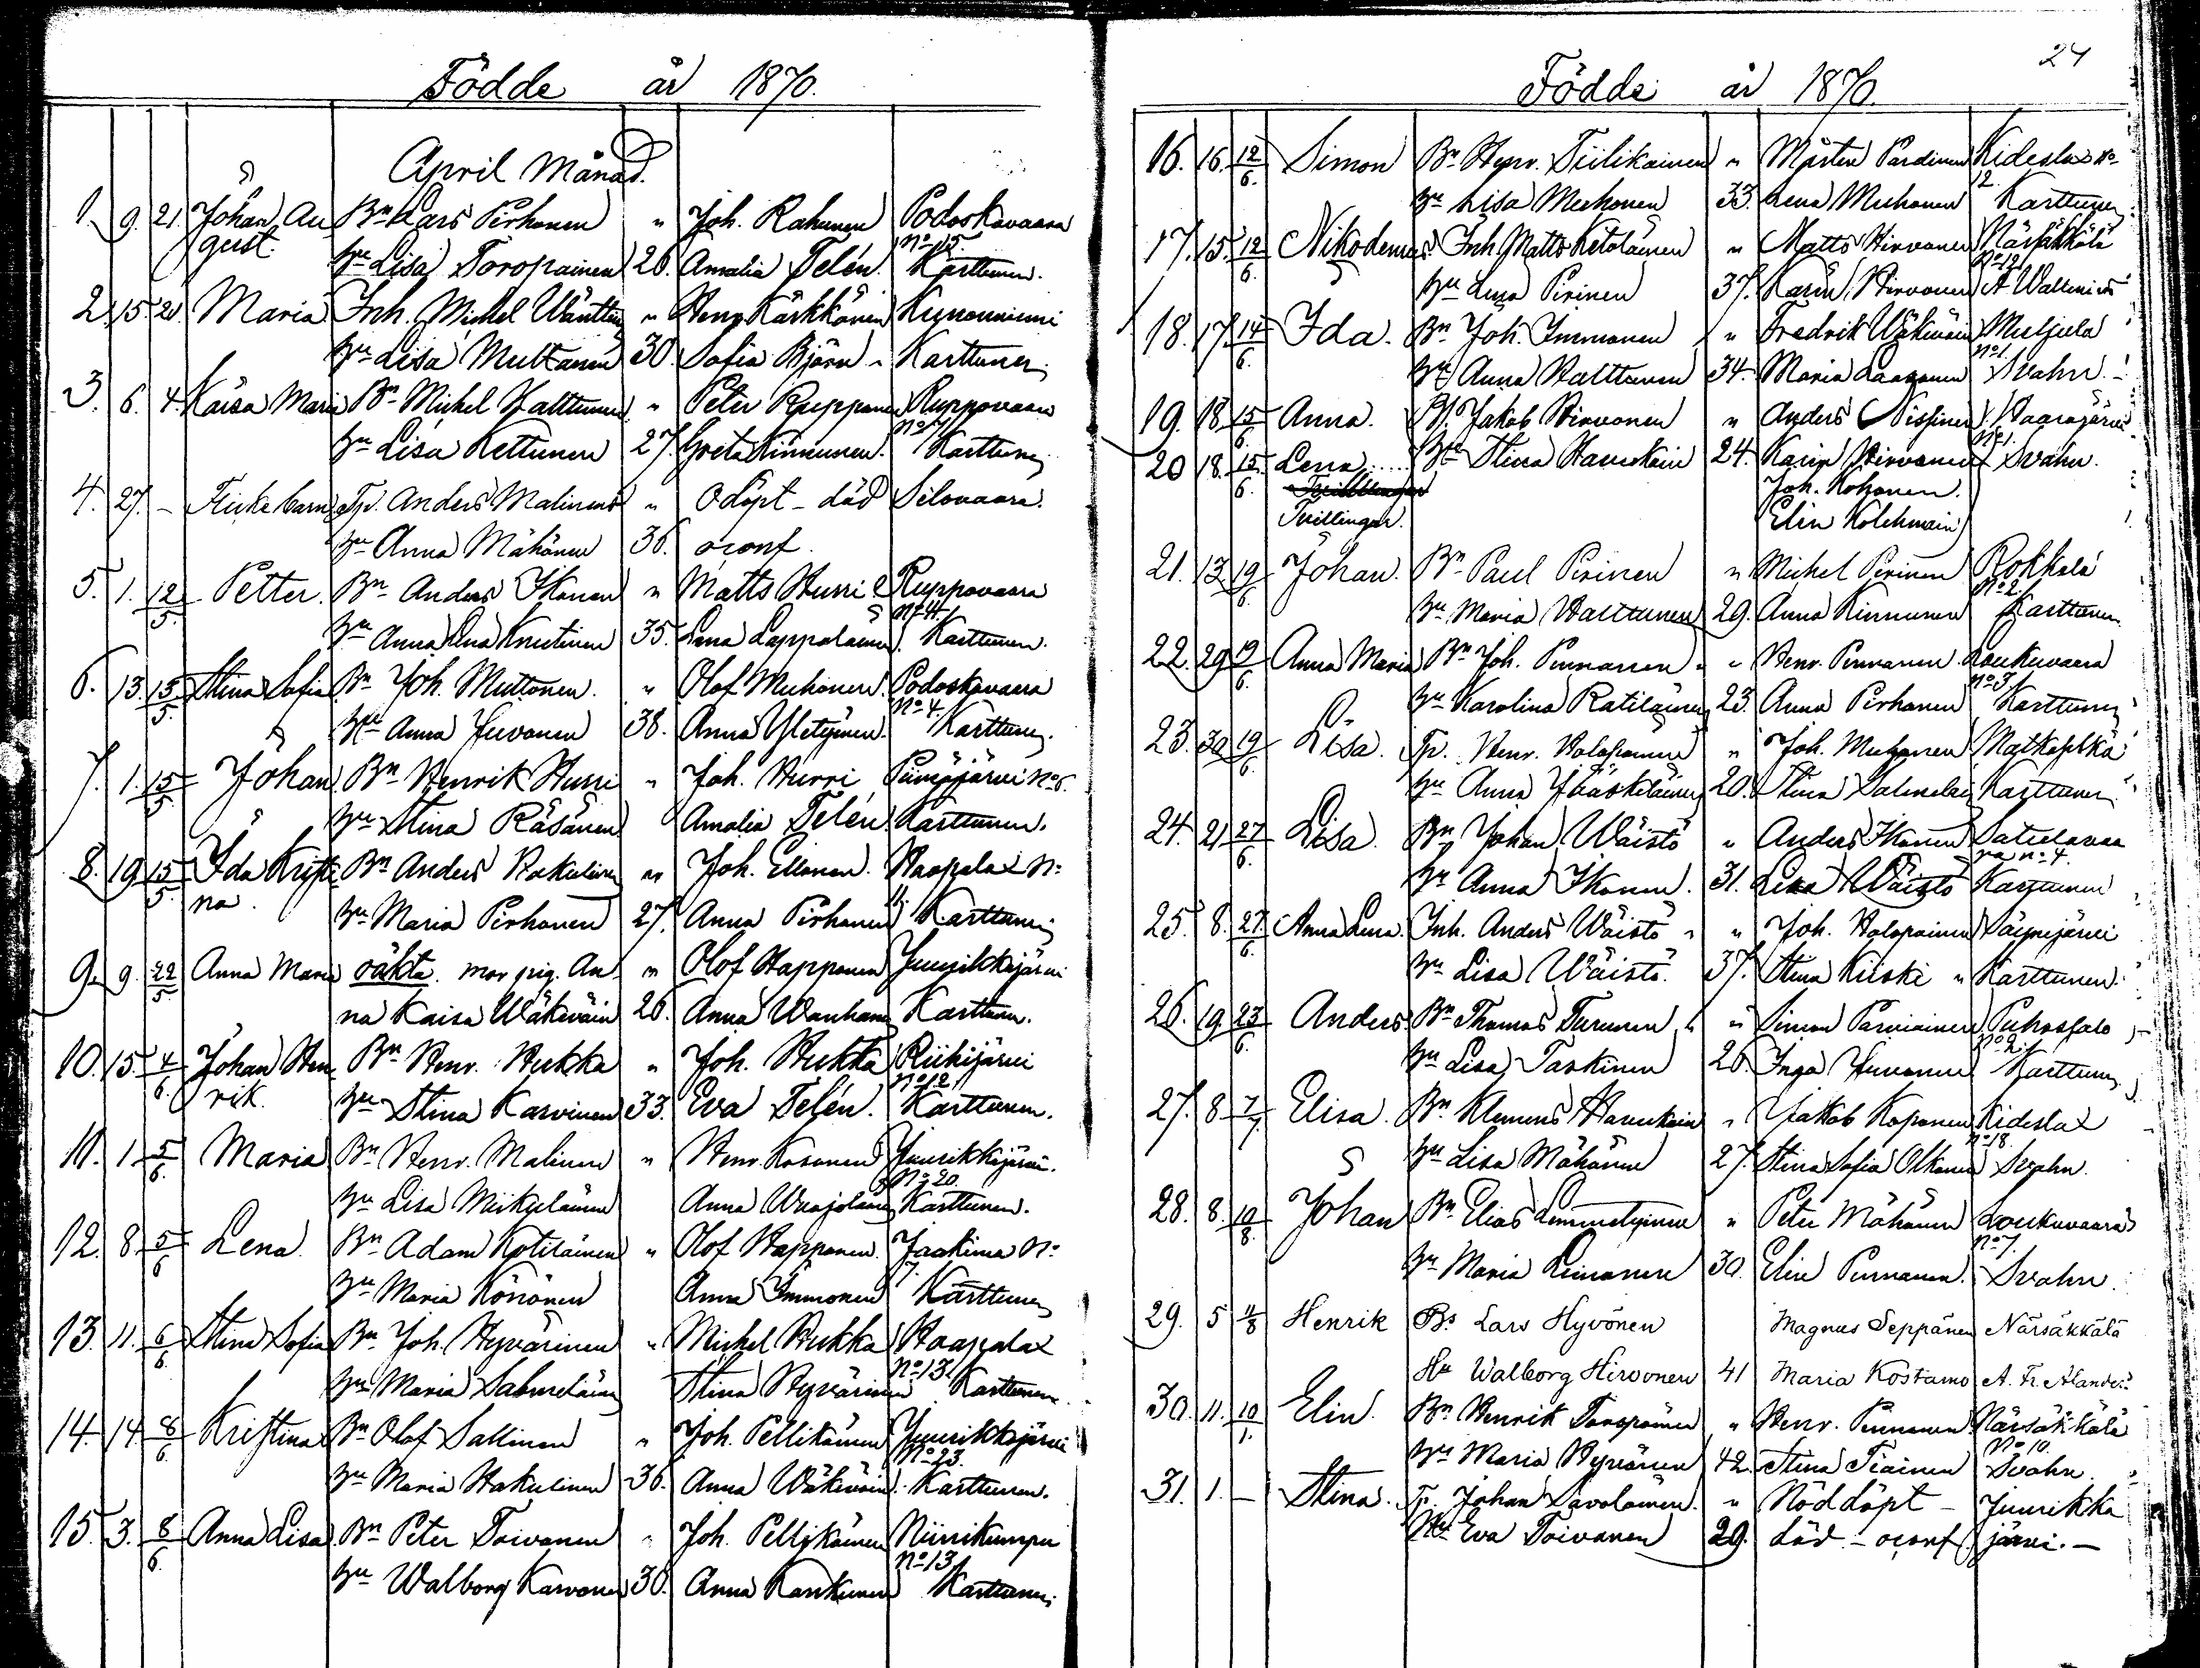 Födde år 1870.
April Månad.
1. 9. 21. Johan Au Bn Lars Pirhonen " Joh. Rahunen Podoskavaara
gust. hu Lisa Toropainen 26. Amalia Telén. No 15. Karttunen.
2. 15. 21. Maria Inh. Michel Wänttin " Henr Kärkkäinen Kunonniemi
hu Lisa Multanen 30. Sofia Björn - Karttunen
3. 6. 4. Kaisa Maria Bn Michel Halttunen " Peter Ruppon Ruppovaara
hu Lisa Kettunen 27. Greta Kinnunen. No 7. Karttunen
4. 27. - Flicke barn Tp. Anders Malinen " Odöpt - död Silovaara.
hu Anna Mähönen 36. oconf.
5. 1. 12/5. Petter. Bn Anders Ikonen " Matts Hurri Ruppovaara
hu Anna Lena Knutinen 35. Lena Lappalainen No 4. Karttunen.
6. 13. 15/5. Stina Sofia Bn Joh. Muttonen. " Olof Muhonen Podoskavaara
hu Anna Juvonen 38. Anna Yletyinen. No 4. Karttunen.
7. 1. 15/5 Johan Bn Henrik Hurri " Joh. Hurri Purujärvi No 6.
hu Stina Räsänen Amalia Telén. Karttunen.
8. 19 15/5. Ida Kristi Bn Anders Hakulinen " Joh. Ellonen. Haapalax No
na. hu Maria Pirhonen 27. Anna Pirhonen 11. Karttunen
9. 9. 22/5 Anna Maria oäkta. mor pig. An " Olof Happonen Juurikkajärvi
na Kaisa Wäkeväin 26. Anna Wanhan Karttunen.
10. 15. 4/6. Johan Hen Bn Henr. Hukka " Joh. Hukka Riihijärvi
rik. hu Stina Karvinen 33. Eva Telén. No 12. Karttunen.
11. 1. 5/6. Maria Bn Henr. Malinen " Henr. Kosonen Juurikkajärvi.
hu Lisa Mikkeläinen Anna No 20. Karttunen.
12. 8. 5/6 Lena. Bn Adam Kotilainen " Olof Happonen. Jaakima No
hu Maria Könönen Anna Immonen 7. Karttunen
13. 11. 6/6 Stina Sofia Bn Joh. Hyvärinen " Michel Hukka Haapalax
hu Maria Salmeläin Stina Hyvärinen No 13. Karttunen
14. 14. 8/6. Kristina Bn Olof Sallinen " Joh. Pellikäinen Juurikkajärvi
hu Maria Hakulinen 36. Anna Wäkeväin No 23. Karttunen.
15. 3. 8/6. Anna Lisa Bn Peter Toivanen " Joh. Pellikäinen Niinikumpu
hu Walborg Karvonen 30. Anna Karhunen No 13. Karttunen
24
Födde år 1870.
16. 16. 12/6. Simon Bn Henr. Tiilikainen " Mårten Pardinen Kideslax No
hu Lisa Muhonen 33. Lena Muhonen 12. Karttunen
17. 15. 12/6. Nikodemus Inh Matts Ketolainen " Matts Hirvonen Närsäkkälä
hu Lena Pirinen 37. Karin Hirvonen No 12. A Wallenius
18. 17. 14/6. Ida. Bn Joh. Immonen " Fredrik Wäkeväin Muljula
hu Anna Halttunen 34. Maria Laasonen No 1. Svahn.
19. 18. 15/6. Anna. Bs Jakob Hirvonen " Anders Nissinen Haarajärvi
20 18. 15/6. Lena hu Stina Haurukain 24. Karin Hirvonen No 1. Svahn.
Joh. Kohonen.
Tvillingar. Elin Kolehmain
21. 13. 19/6. Johan. Bn Paul Pirinen " Michel Pirinen Rokkala
hu Maria Halttunen 29. Anna Kinnunen No 2. Karttunen
22. 29 19/6. Anna Maria Bn Joh. Pennanen " Henr. Pennanen Loukuvaara
hu Karolina Ratilainen 23. Anna Pirhonen No 3. Karttunen
23. 30. 19/6. Lisa. Tp. Henr. Holopainen " Joh. Muhonen Matkaselkä
hu Anna Jääskeläinen 20. Stina Salmelain Karttunen
24. 21. 27/6. Lisa. Bn Johan Wäistö " Anders Ikonen Satulavaa
hu Anna Ikonen. 31. Lena Wäistö ra no 4. Karttunen
25. 8. 27/6. Anna Lena. Inh. Anders Wäistö " Joh. Holopainen Säynejärvi
hu Lisa Wäistö. 37. Stina Kiiski " Karttunen.
26. 19. 23/6. Anders Bn Thomas Turunen " Simon Parviainen Puhossalo
hu Lisa Taskinen 26. Inga Juvonen No 2. Karttunen
27. 8 7/7. Elisa. Bn Klemens Haurukain " Jakob Koponen Kideslax
hu Lisa Mähönen 27. Stina Sofia Olkonen No 18. Svahn.
28. 8. 10/8. Johan Bn Elias Lemmetyinen " Peter Mähönen Loukuvaara
hu Maria Leinonen 30. Elin Pennanen. No 7. Svahn.
29. 5 11/8 Henrik Bs Lars Hyvönen Magnus Seppänen Närsäkkälä
Hu Walborg Hirvonen 41 Maria Kostamo A. Fr. Ålander.
30. 11. 10/1. Elin. Bn Henrik Toropainen " Henr. Pennanen Närsäkkälä
hu Maria Hyvönen 42. Stina Tiainen No 10. Svahn.
31. 1. - Stina. Tp. Johan Savolainen. " Nöddöpt - Juurikka
Hu Eva Toivanen 29. död - oconf. järvi. -